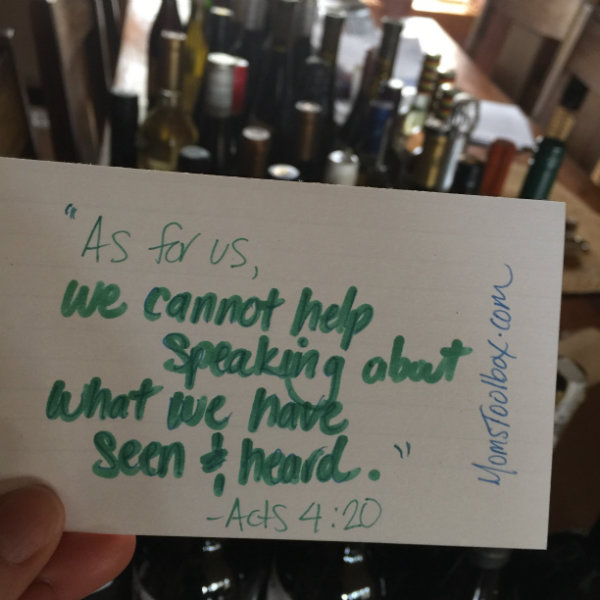 "As for us,
we cannot help
speaking about
what we have
seen & heard."
-Acts 4:20
MomsToolbox.com